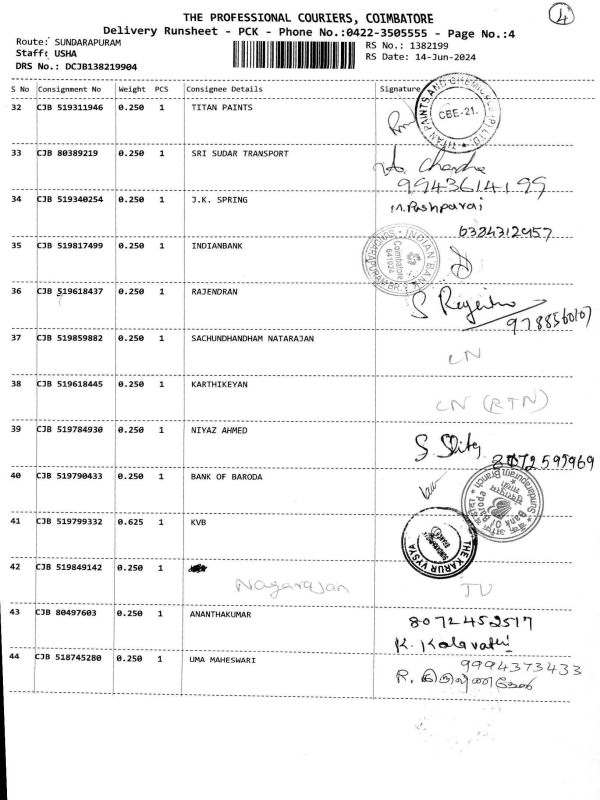 4
THE PROFESSIONAL COURIERS, COIMBATORE
Delivery Runsheet - PCK - Phone No.:0422-3505555 - Page No.:4
Route: SUNDARAPURAM
RS No.: 1382199
Staff: USHA
RS Date: 14-Jun-2024
DRS No.: DCJB138219904
S No Consignment No Weight PCS Consignee Details Signature
32 CJB 519311946 0.250 1 TITAN PAINTS
TITAN PAINTS AND CHEMICALS (P) LTD CBE-21.
33 CJB 80389219 0.250 1 SRI SUDAR TRANSPORT
9943614199
34 CJB 519340254 0.250 1 J.K. SPRING M.Pushparaj
6384312957
35 CJB 519817499 0.250 1 INDIANBANK
INDIAN BANK Coimbatore 641024 SUNDARAPURAM BR.
36 CJB 519618437 0.250 1 RAJENDRAN
37 CJB 519859882 0.250 1 SACHUNDHANDHAM NATARAJAN LN
38 CJB 519618445 0.250 1 KARTHIKEYAN LN (RTN)
39 CJB 519784930 0.250 1 NIYAZ AHMED
8072595969
40 CJB 519790433 0.250 1 BANK OF BARODA
Bank Of Baroda Sundarapuram Branch
41 CJB 519799332 0.625 1 KVB
THE KARUR VYSYA
42 CJB 519849142 0.250 1
Nagarajan
43 CJB 80497603 0.250 1 ANANTHAKUMAR 8072452517
K. Kalavathi
44 CJB 518745280 0.250 1 UMA MAHESWARI 9994373433
R.